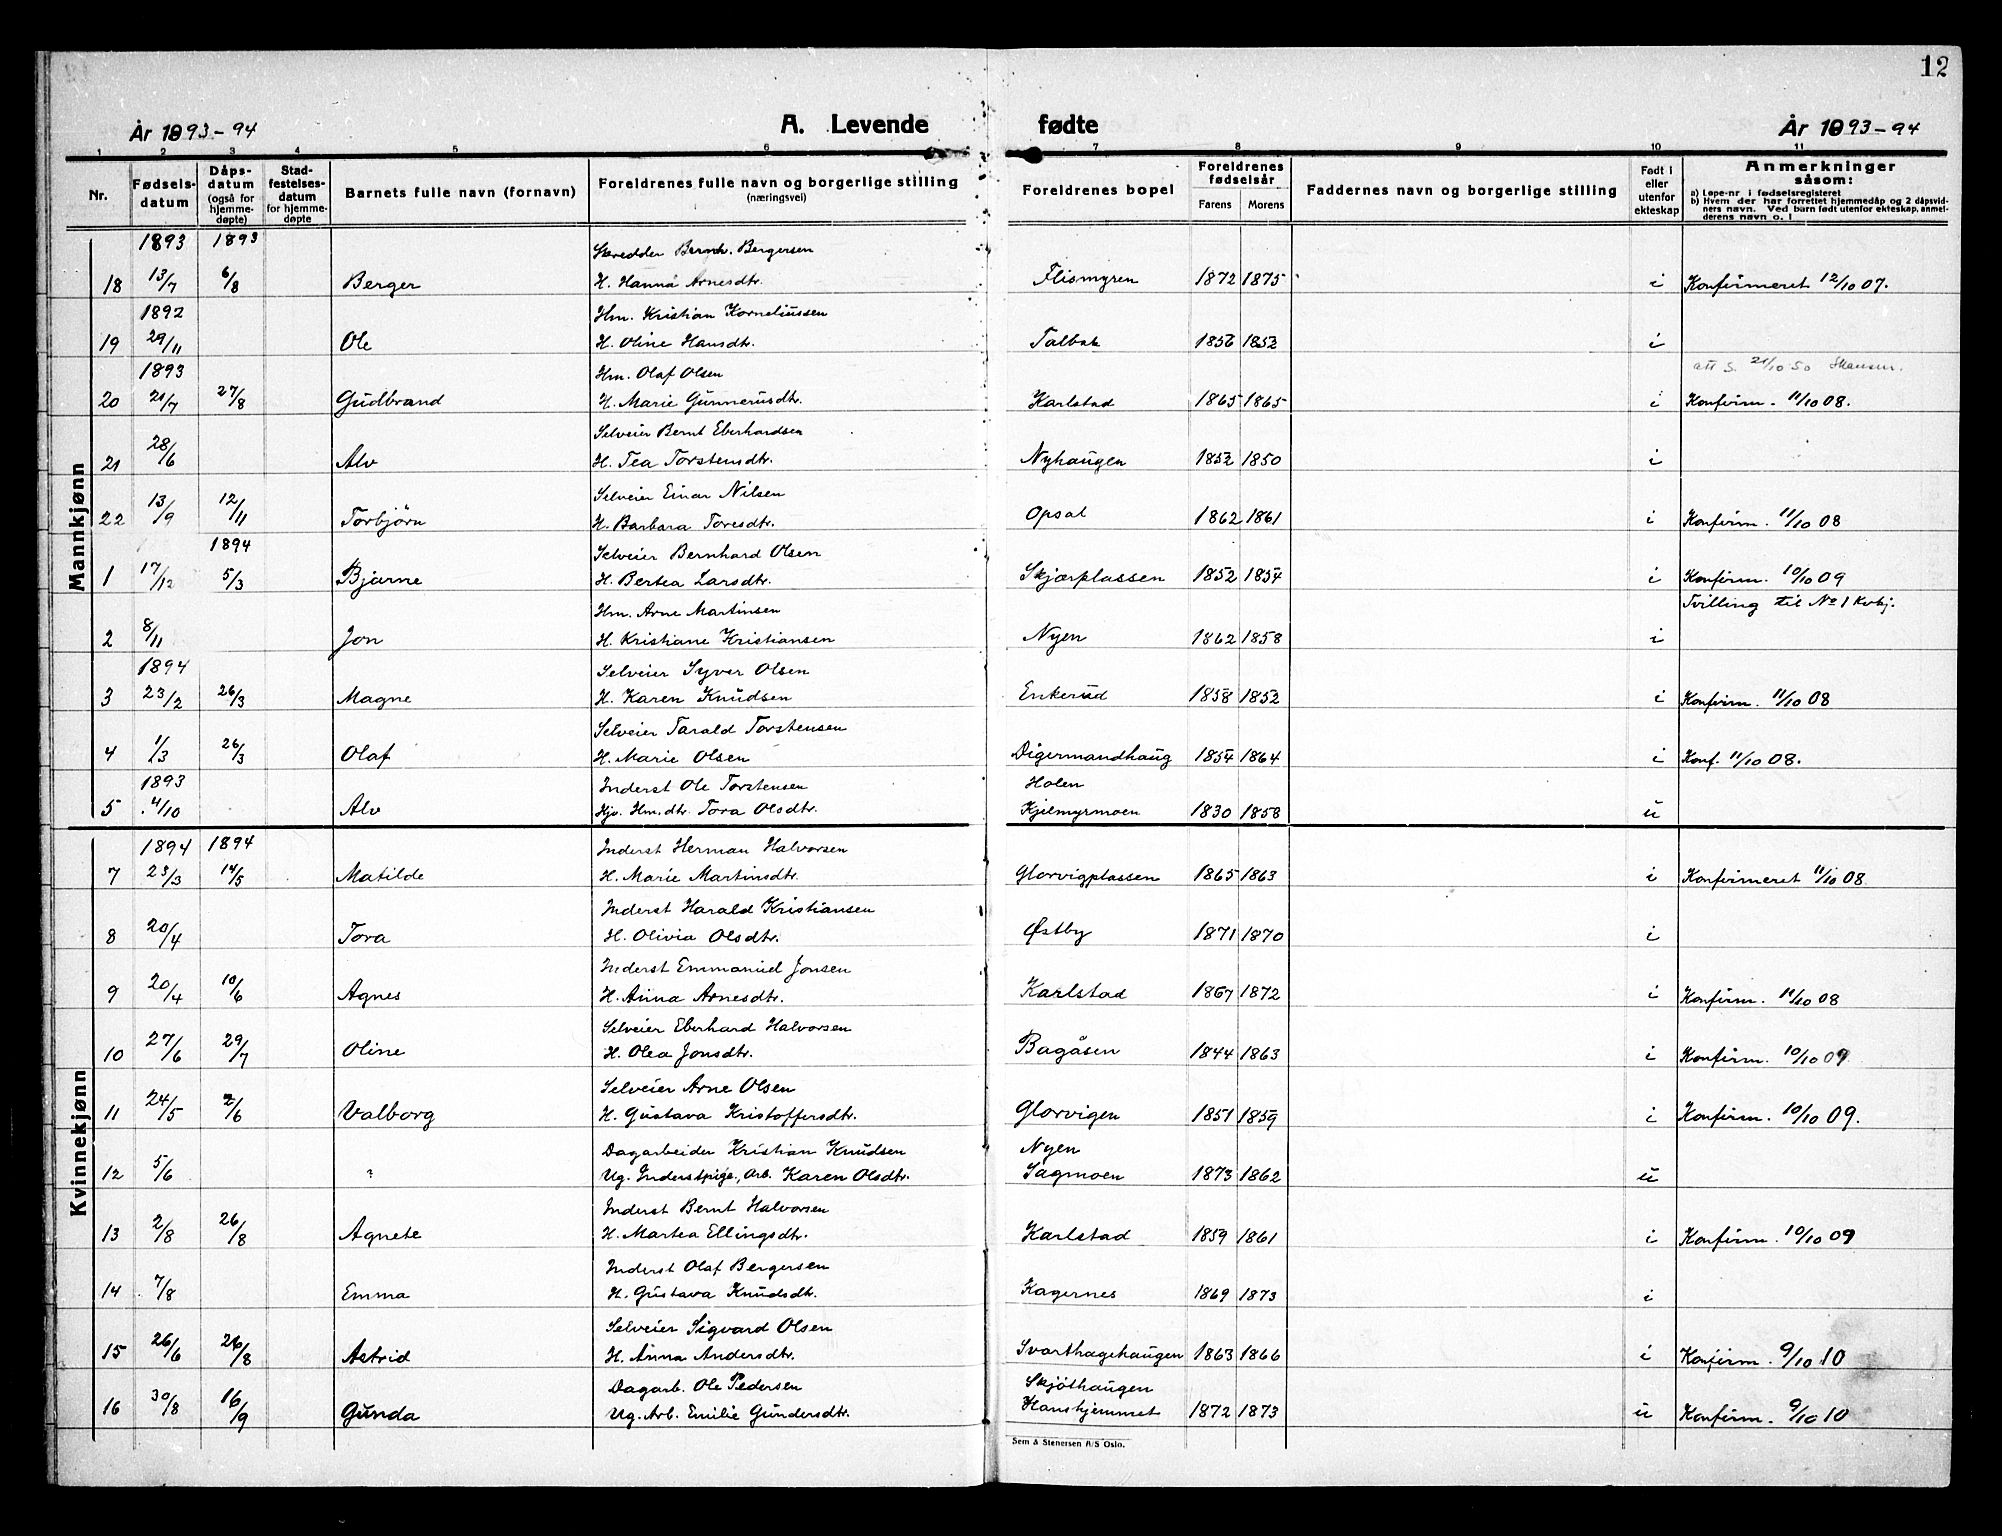 12
År 1893-94 A. Levende fødte År 1893-94
1 2 3 4 5 6 7 8 9 10 11
Nr. Fødsels-datum Dåps-datum (også for hjemme-døpte) Stad-festelses-datum for hjemme-døpte Barnets fulle navn (fornavn) Foreldrenes fulle navn og borgerlige stilling (næringsvei) Foreldrenes bopel Foreldrenes fødselsår Farens Morens Faddernes navn og borgerlige stilling Født i eller utenfor ekteskap Anmerkninger såsom:
a) Løpe-nr i fødselsregisteret
b) Hvem der har forrettet hjemmedåp og 2 dåpsvidners navn. Ved barn født utenfor ekteskap, anmelderens navn o. l
Mannkjønn
1893 1893 Bernh. Bergersen
18 13/7 6/8 Berger H. Hanna Arnesdtr. Flismyren 1872 1875 i Konfirmeret 12/10 07.
1892 Hm. Kristian Korneliussen
19 29/11 Ole H. Oline Hansdtr. Talbak 1856 1852 i
1893 Hm. Olaf Olsen att S. 21/10 50
20 21/7 27/8 Gudbrand H. Marie Gunnerusdtr. Karlstad 1865 1865 i Konfirm. 11/10 08.
Selveier Bernt Eberhardsen
21 28/6 Alv H. Tea Torstensdtr. Nyhaugen 1852 1850 i
Selveier Einar Nilsen
22 13/9 12/11 Torbjörn H. Barbara Toresdtr. Opsal 1862 1861 i Konfirm. 11/10 08
1894 Selveier Bernhard Olsen
1 17/12 5/3 Bjarne H. Bertea Larsdtr. Skjærplassen 1852 1854 i Konfirm. 10/10 09
Hm. Arne Martinsen Tvilling til No 1 Kvkj.
2 8/11 Jon H. Kristiane Kristiansen Nyen 1862 1858 i
1894 Selveier Syver Olsen
3 23/2 26/3 Magne H. Karen Knudsen Enkerud 1858 1852 i Konfirm. 11/10 08
Selveier Tarald Torstensen
4 1/3 26/3 Olaf H. Marie Olsen Digermandhaug 1854 1864 i Konf. 11/10 08.
1893 Inderst Ole Torstensen Holen
5 4/10 Alv Hjv. Hm.dtr. Tora Olsdtr. Kjelmyrmoen 1830 1858 u
Kvinnekjønn
1894 1894 Inderst Herman Halvorsen
7 23/3 14/5 Matilde H. Marie Martinsdtr. Glorvigplassen 1865 1863 i Konfirmeret 11/10 08
Inderst Harald Kristiansen
8 20/4 Tora H. Olivia Olsdtr. Østby 1871 1870 i
Inderst Emmanuel Jonsen
9 20/4 10/6 Agnes H. Anna Arnesdtr. Karlstad 1867 1872 i Konfirm. 11/10 08
Selveier Eberhard Halvorsen
10 27/6 29/7 Oline H. Olea Jonsdtr. Bagåsen 1844 1863 i Konfirm. 10/10 09.
Selveier Arne Olsen
11 24/5 2/6 Valborg H. Gustava Kristoffersdtr. Glorvigen 1851 1859 i Konfirm. 10/10 09.
Dagarbeider Kristian Knudsen Nyen
12 5/6 ? Ug. Inderstpige, Arb. Karen Olsdtr. Sagmoen 1873 1862 u
Inderst Bernt Halvorsen
13 2/8 26/8 Agnete H. Martea Ellingsdtr. Karlstad 1859 1861 i Konfirm. 10/10 09
Inderst Olaf Bergersen
14 7/8 Emma H. Gustava Knudsdtr. Kagernes 1869 1873 i
Selveier Sigvard Olsen
15 26/6 26/8 Astrid H. Anna Andersdtr. Svarthagehaugen 1863 1866 i Konfirm. 9/10 10
Dagarb. Ole Pedersen Skjöthaugen
16 30/8 16/9 Gunda Ug. Arb. Emilie Gundersdtr. Hanskjemmet 1872 1873 u Konfirm. 9/10 10
Sem & Stenersen A/S Oslo.